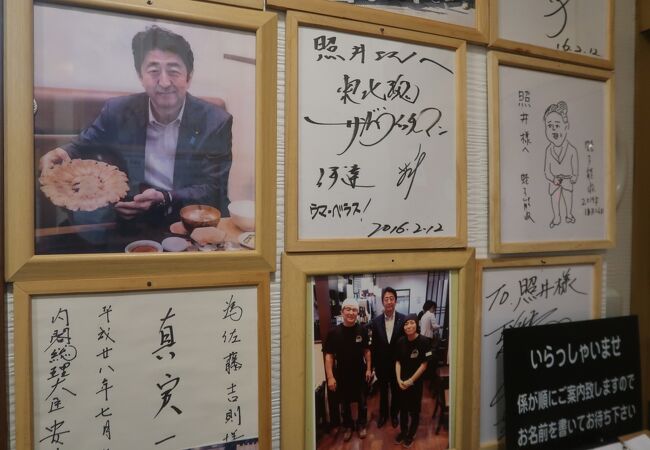 照井さんへ
東北魂
サンドウィッチマン
伊達
ウマ・ベラス!
2016.2.12
16.2.12
照井様へ
為佐藤吉則様
真実一
平成廿八年七月
内閣総理大臣 安
TO.照井様
いらっしゃいませ
係が順にご案内致しますので
お名前を書いてお待ち下さい